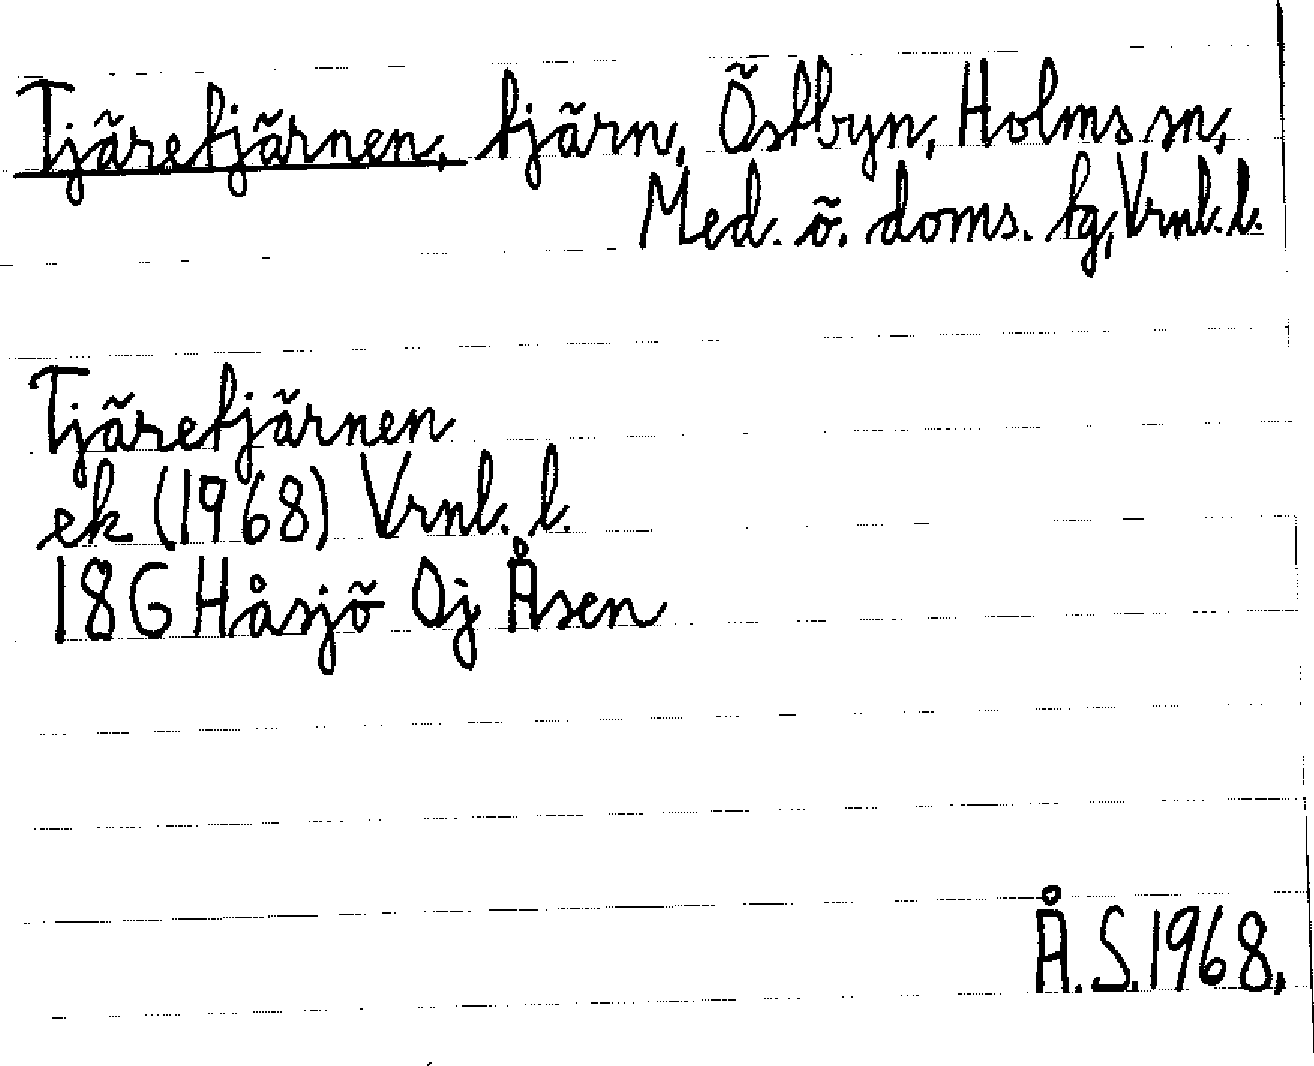 Tjäretjärnen, tjärn, Östbyn, Holms sn,
Med. ö. doms. tg, Vrnl. l.
Tjäretjärnen
ek (1968) Vrnl. l.
18G Håsjö Oj Åsen
Å.S.1968.